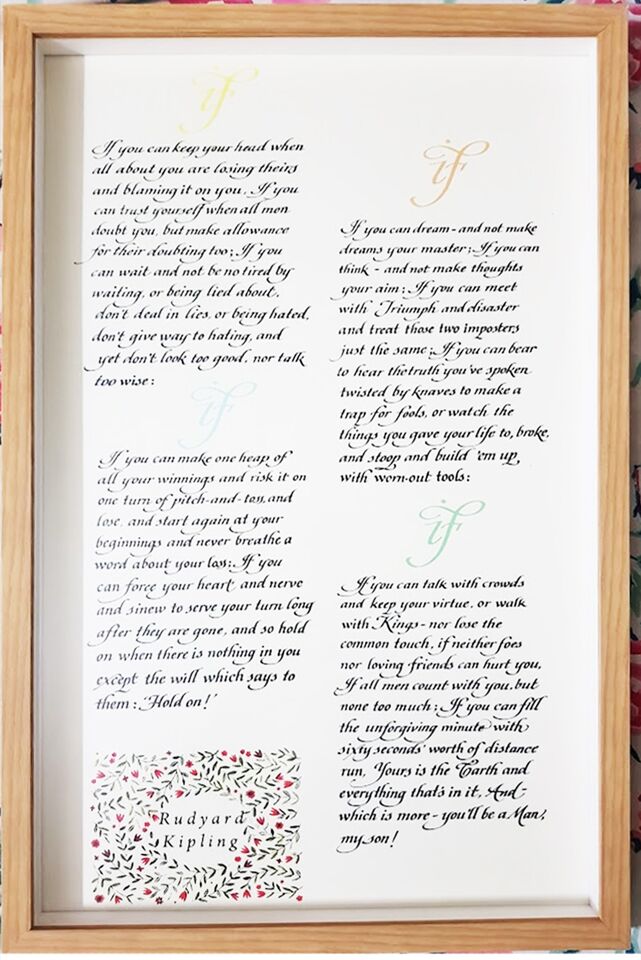 if
If you can keep your head when
all about you are losing theirs
and blaming it on you, If you
can trust yourself when all men
doubt you, but make allowance
for their doubting too; If you
can wait and not be no tired by
waiting, or being lied about,
don't deal in lies, or being hated,
don't give way to hating, and
yet don't look too good, nor talk
too wise:
if
If you can dream - and not make
dreams your master; If you can
think - and not make thoughts
your aim; If you can meet
with Triumph and disaster
and treat those two imposters
just the same; If you can bear
to hear the truth you've spoken
twisted by knaves to make a
trap for fools, or watch the
things you gave your life to, broke,
and stoop and build 'em up
with worn-out tools:
if
If you can make one heap of
all your winnings and risk it on
one turn of pitch-and-toss, and
lose, and start again at your
beginnings and never breathe a
word about your loss; If you
can force your heart and nerve
and sinew to serve your turn long
after they are gone, and so hold
on when there is nothing in you
except the will which says to
them: 'Hold on!'
if
If you can talk with crowds
and keep your virtue, or walk
with Kings - nor lose the
common touch, if neither foes
nor loving friends can hurt you,
If all men count with you, but
none too much; If you can fill
the unforgiving minute with
sixty seconds' worth of distance
run, Yours is the Earth and
everything that's in it, And -
which is more - you'll be a Man,
my son!
Rudyard
Kipling